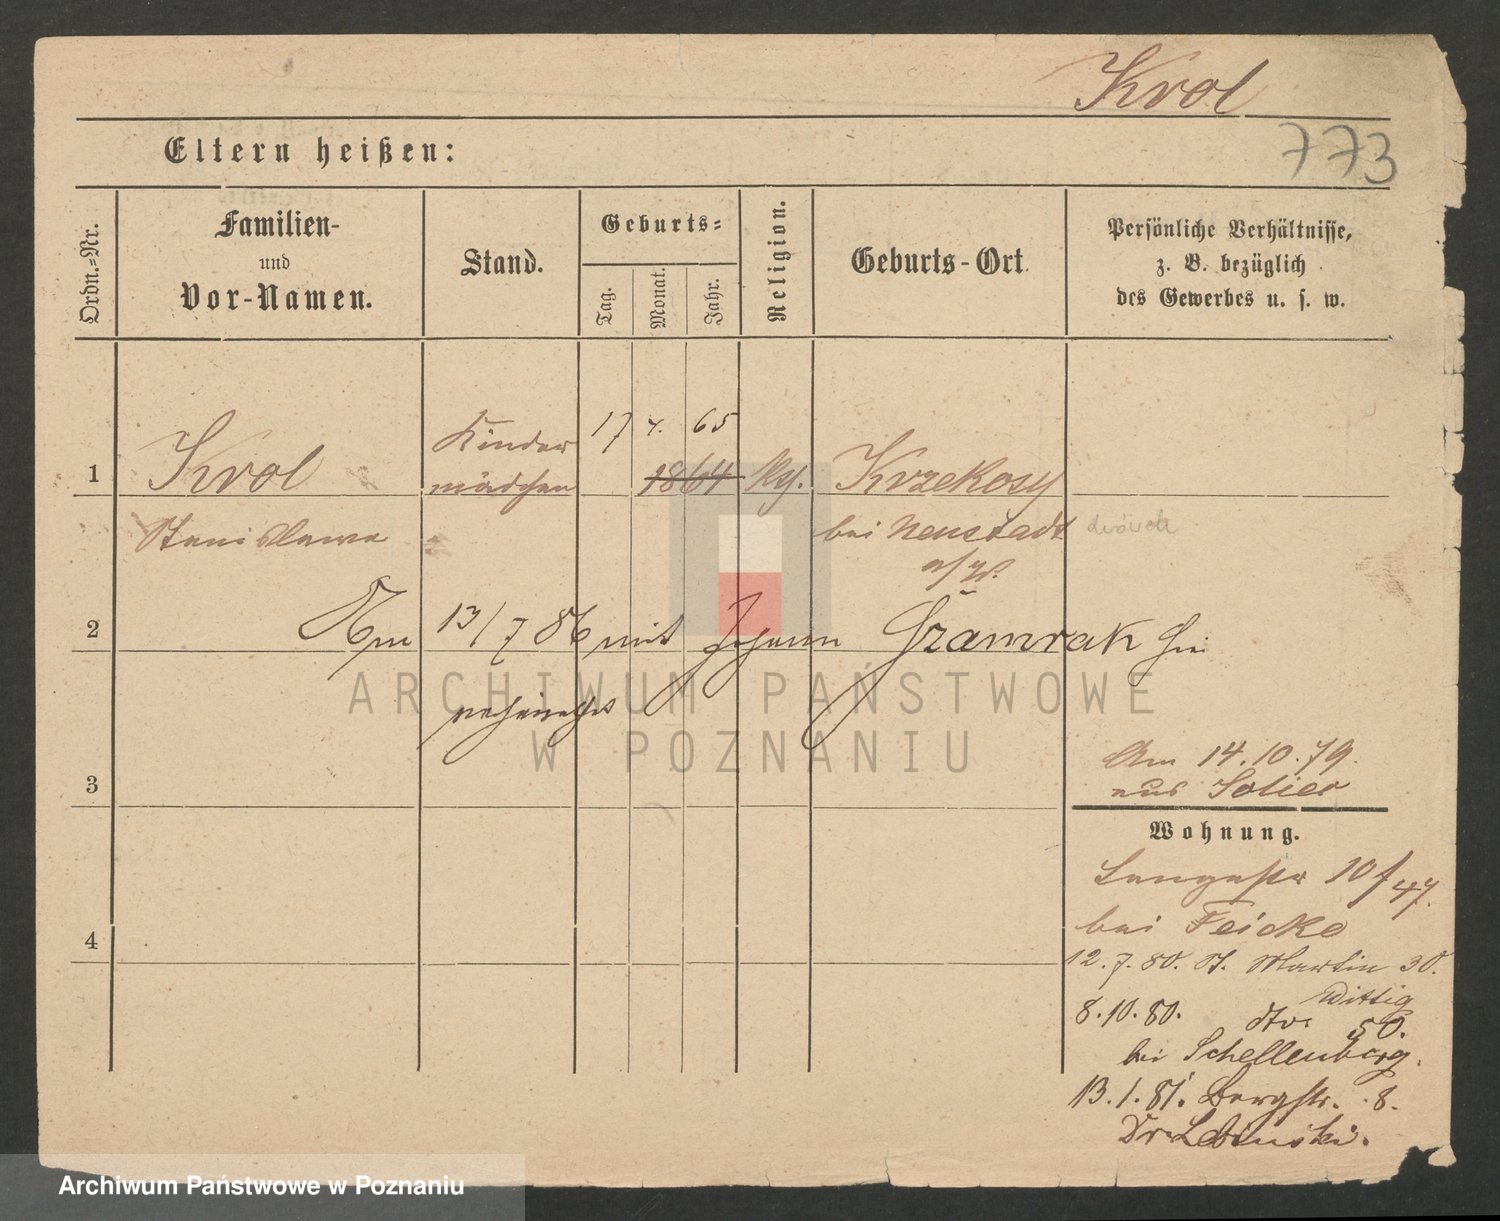 Krol
773
Eltern heißen:
Ordn.-Nr.
Familien-
und
Vor-Namen.
Stand.
Geburts-
Tag.
Monat.
Jahr.
Religion.
Geburts-Ort.
Persönliche Verhältnisse,
z. B. bezüglich
des Gewerbes u. s. w.
1
Krol
Stanislawa
Kinder
mädchen
17 4. 65
1864
Krzekosy
bei Neustadt
a/W.
2
Am 13/7 86 mit Johann hier
verheirathet
ARCHIWUM PAŃSTWOWE
W POZNANIU
3
Am 14.10.79.
aus
Wohnung.
Langestr 10/47.
bei Feicke
4
12.7.80. St. Martin 30.
Wittig
8.10.80. dto. 50.
bei Schellenberg.
13.1.81. Bergstr. 8.
Dr Lebinski.
Archiwum Państwowe w Poznaniu